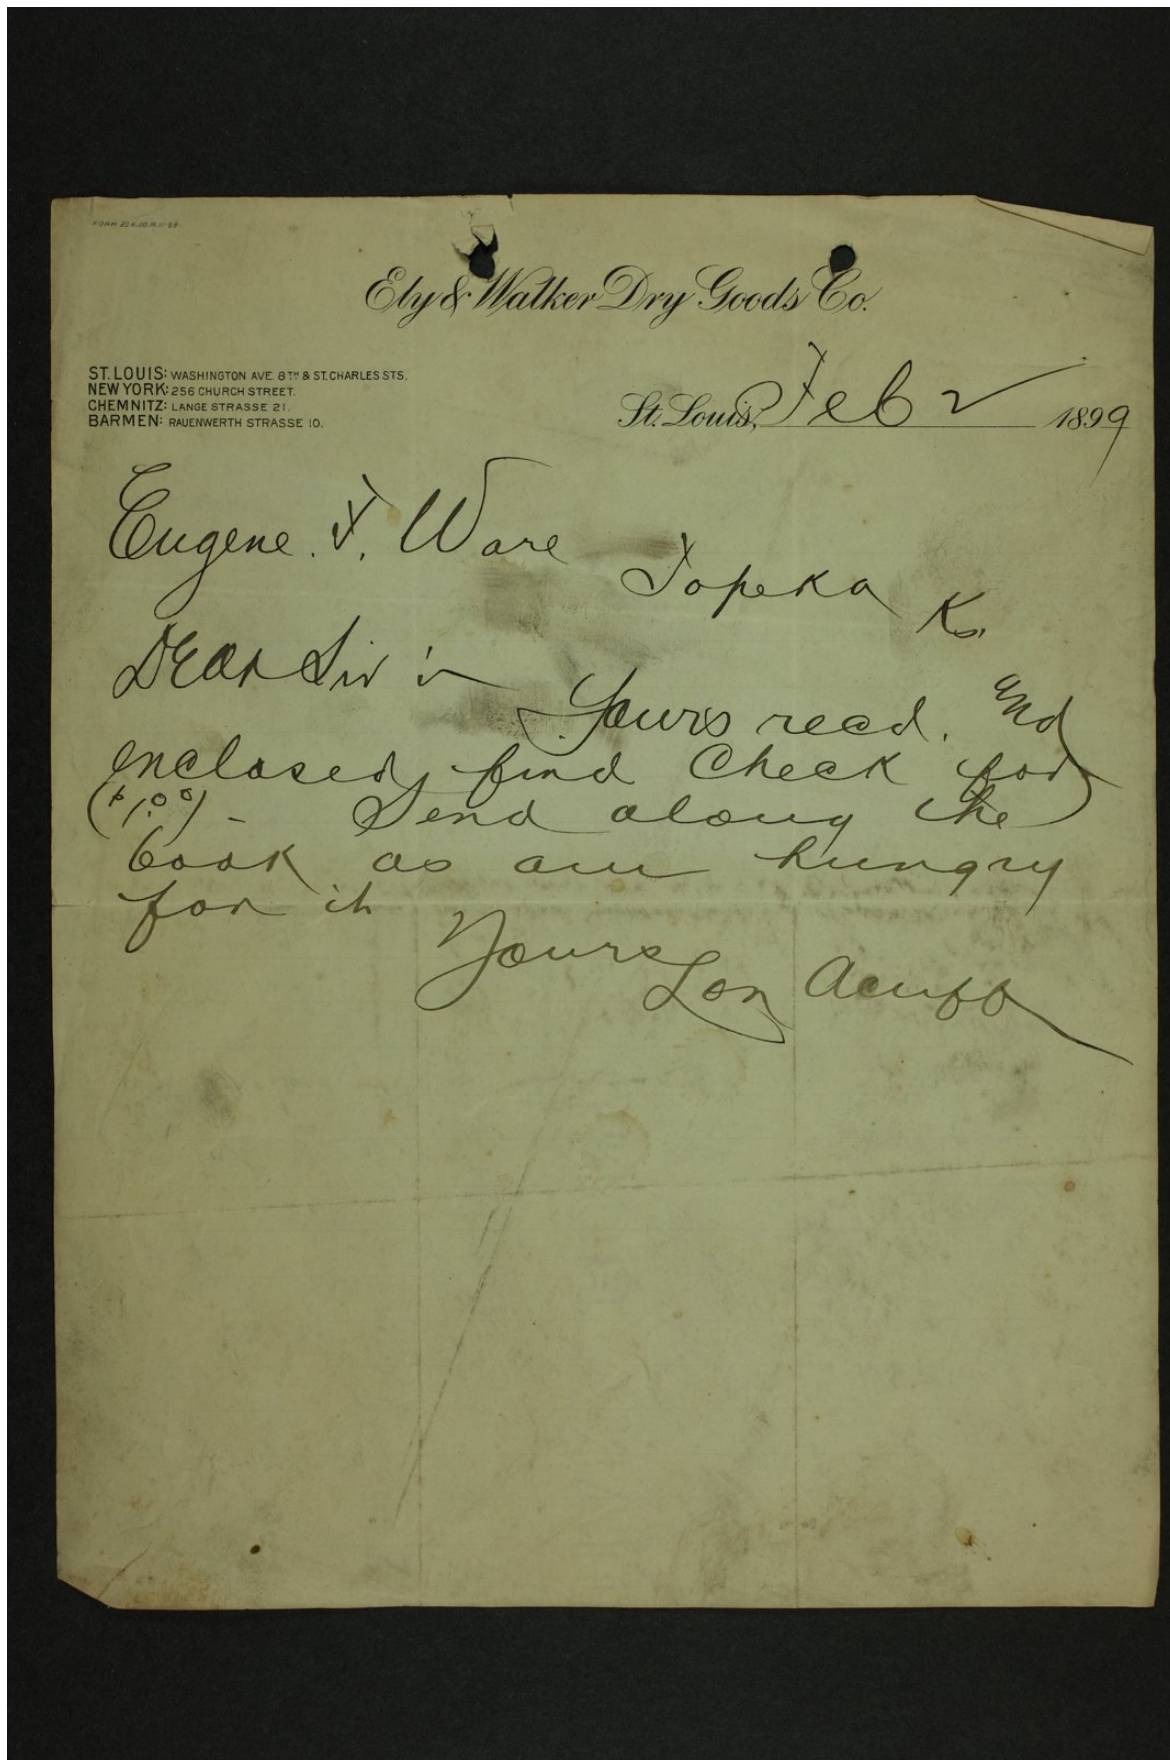 Ely & Walker Dry Goods Co.
ST. LOUIS: WASHINGTON AVE. 8TH & ST. CHARLES STS.
NEW YORK: 256 CHURCH STREET.
CHEMNITZ: LANGE STRASSE 21.
BARMEN: RAUENWERTH STRASSE 10.
St. Louis, Feb 2 1899
Eugene. F. Ware
Topeka
Ks.
Dear Sir :-
Yours recd. and
enclosed find Check for
($1.00) - Send along the
book as am hungry
for it
Yours
Lon Acuff